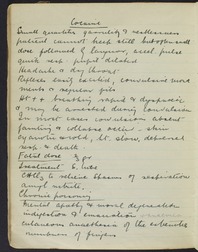 Cocaine
Small quantities garrulity & restlessness
patient cannot keep still but
dose followed by languor, accel. pulse
quick resp. pupil dilated
Headache & dry throat
Reflexes easily excited, convulsive move
ments &
Ht ++ breathing rapid & dyspnoeic
& may be arrested during convulsion
In most cases convulsions absent
fainting & collapse occur. skin
cyanotic & cold, ht. slow, depressed
resp. & death
Fatal dose
Treatment
to relieve spasm of respiration
amyl nitrite.
Chronic poisoning
Mental apathy & moral depravation
indigestion & emaciation
cutaneous anaesthesia of the extremities
numbness of fingers